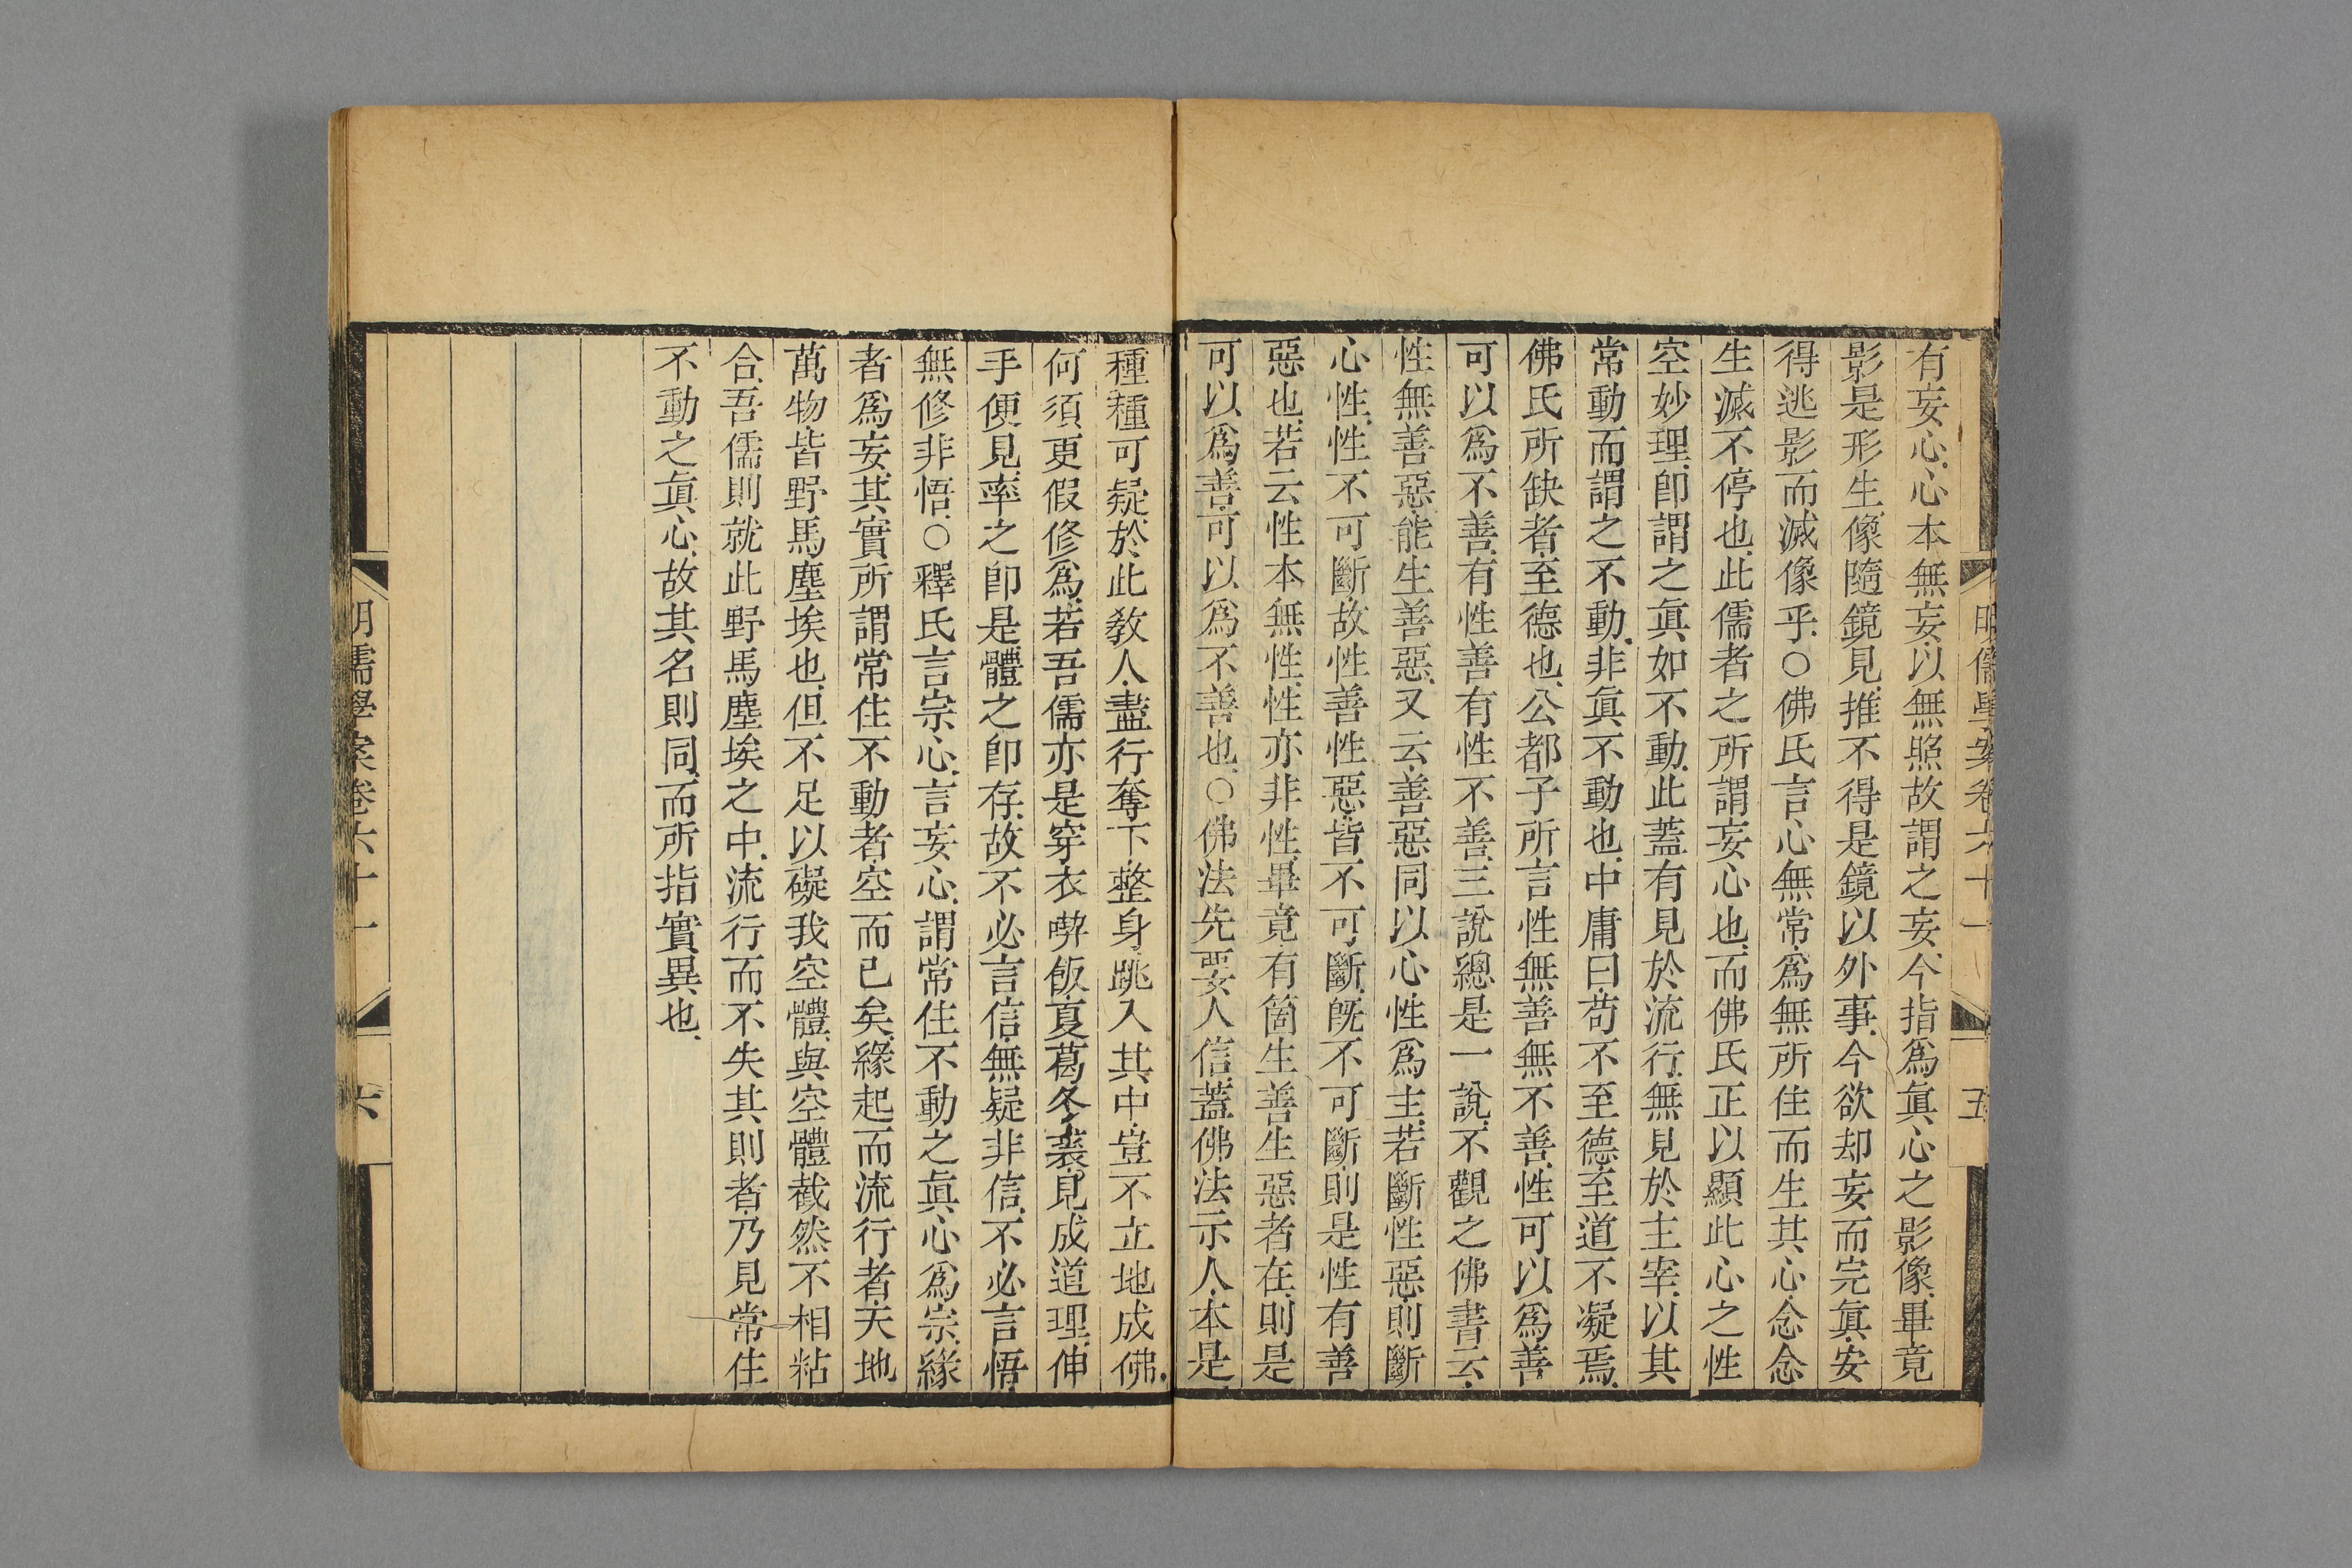 明儒學案卷六十一
五
有妄心.心本無妄.以無照故謂之妄.今指爲眞心之影像.畢竟
影是形生.像隨鏡見.推不得是鏡以外事.今欲却妄而完眞.安
得逃影而滅像乎.○佛氏言心無常.爲無所住而生其心.念念
生滅不停也.此儒者之所謂妄心也.而佛氏正以顯此心之性
空妙理.卽謂之眞如不動.此蓋有見於流行.無見於主宰.以其
常動而謂之不動.非眞不動也.中庸曰.苟不至德.至道不凝焉.
佛氏所缺者.至德也.公都子所言性無善無不善.性可以爲善
可以爲不善.有性善有性不善.三說總是一說.不觀之佛書云.
性無善惡.能生善惡.又云.善惡同以心性爲主.若斷性惡.則斷
心性.性不可斷.故性善性惡.皆不可斷.旣不可斷.則是性有善
惡也.若云性本無性.性亦非性.畢竟有箇生善生惡者在.則是
可以爲善.可以爲不善也.○佛法先要人信.蓋佛法示人.本是.
種種可疑.於此教人.盡行奪下.整身跳入其中.豈不立地成佛.
何須更假修爲.若吾儒亦是穿衣喫飯.夏葛冬裘.見成道理.伸
手便見.率之卽是.體之卽存.故不必言信.無疑非信.不必言悟.
無修非悟.○釋氏言宗心.言妄心.謂常住不動之眞心爲宗.緣
者爲妄.其實所謂常住不動者.空而已矣.緣起而流行者.天地
萬物.皆野馬塵埃也.但不足以礙我空體.與空體截然不相粘
合.吾儒則就此野馬塵埃之中.流行而不失其則者.乃見常住
不動之眞心.故其名則同.而所指實異也.
明儒學案卷六十一
六